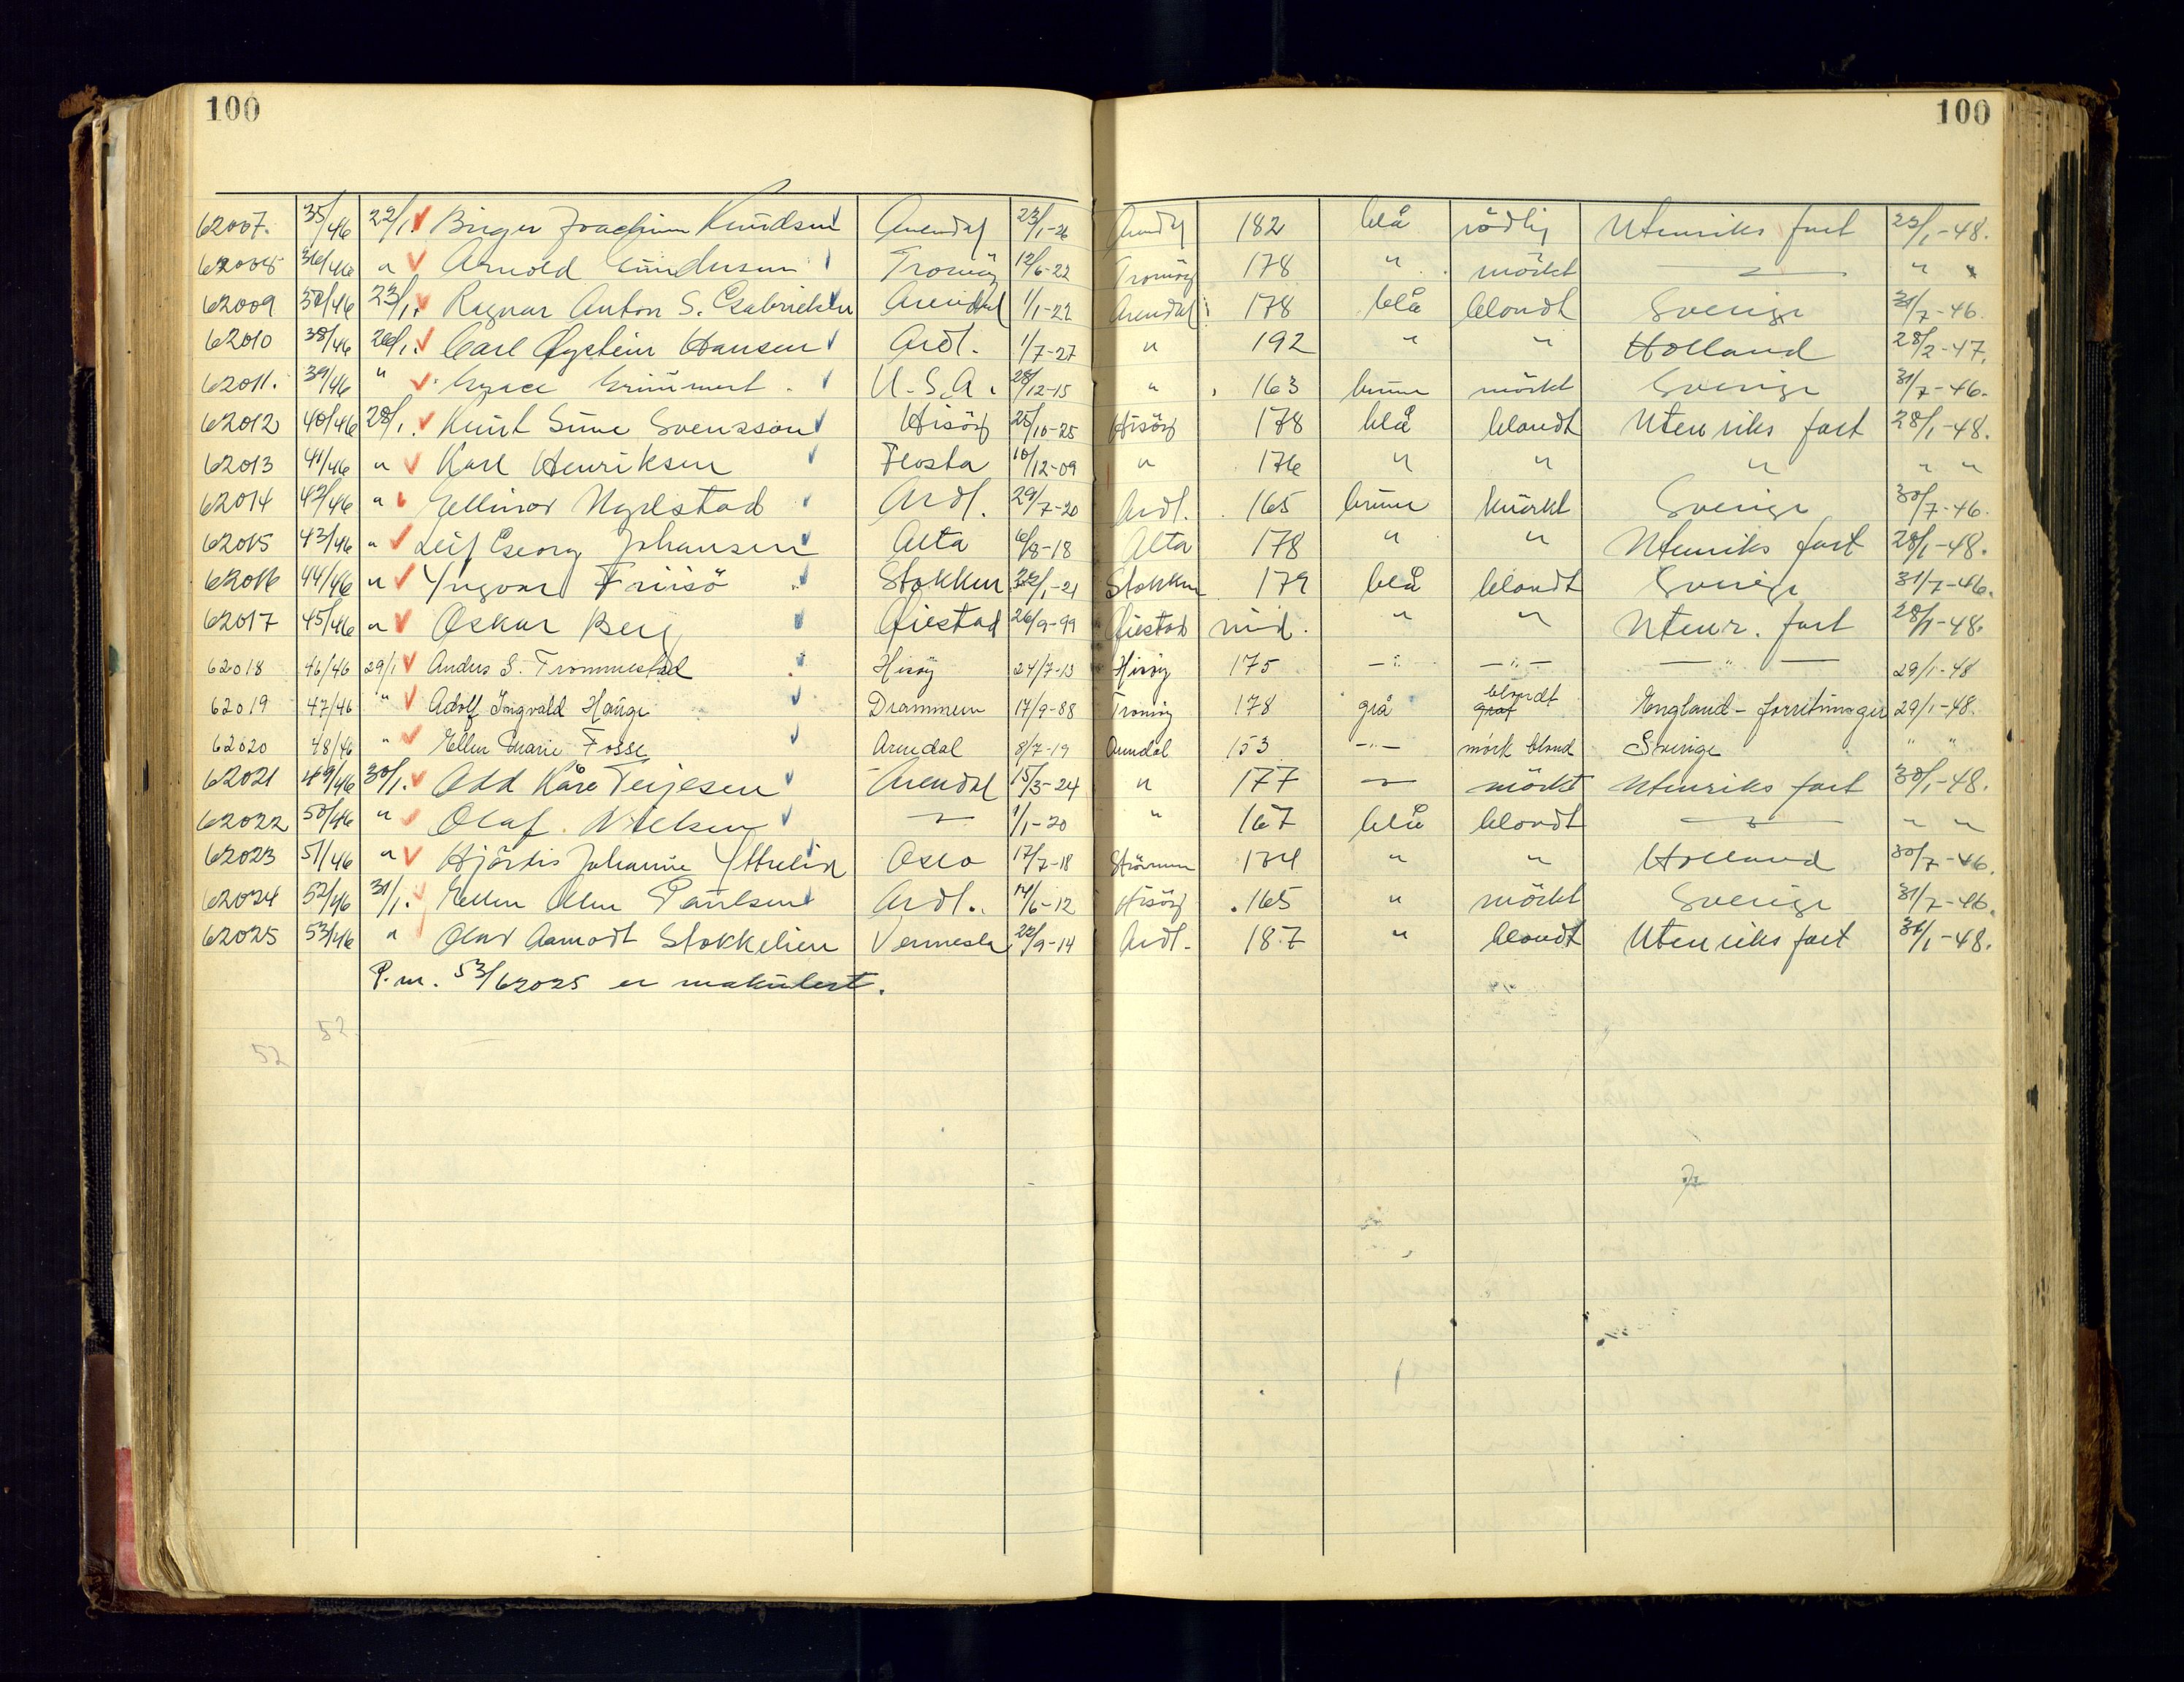 100 100
62007. 35/46 22/1. Birger Joachim Knudsen Arendal 23/1-26 Arendal 182 blå rödlig Utenriks fart 23/1-48.
62008 36/46 " Arnold Gundersen Tromöy 12/6-22 Tromöy 178 " mörkt — " "
62009 37/46 23/1. Ragnar Anton S. Gabrielsen Arendal 1/1-22 Arendal 178 blå blondt Sverige 31/7-46.
62010 38/46 26/1. Carl Øystein Hansen Ardl. 1/7-27 " 192 " " Holland 28/2-47.
62011. 39/46 " Grace U.S.A. 28/12-15 " 163 brune mörkt Sverige 31/7-46.
62012 40/46 28/1. Knut Sune Svensson Hisöy 25/10-25 Hisöy 178 blå blondt Utenriks fart 28/1-48.
62013 41/46 " Karl Henriksen Flosta 10/12-09 " 176 " " " " "
62014 42/46 " Ellinor Nyrstad Ardl. 29/7-20 Ardl. 165 brune mörkt Sverige 30/7-46.
62015 43/46 " Leif Georg Johansen Alta 6/8-18 Alta 178 " " Utenriks fart 28/1-48.
62016 44/46 " Yngvar Friisö Stokken 22/1-21 Stokken 179 blå blondt Sverige 31/7-46.
62017 45/46 " Oskar Berg Øiestad 26/9-99 Øiestad mid. " " Utenr. fart 28/1-48.
62018 46/46 29/1 Anders S. Trommestad Hisöy 24/7-13 Hisöy 175 —"— —"— —"— 29/1-48
62019 47/46 " Adolf Ingvald Hauge Drammen 17/9-88 Tromöy 178 grå blondt England - forretninger 29/1-48.
62020 48/46 " Ellen Marie Fosse Arendal 8/7-19 Arendal 153 —"— mörk blond Sverige " "
62021 49/46 30/1. Odd Kåre Terjesen Arendal 15/3-24 " 177 — mörkt Utenriks fart 30/1-48.
62022 50/46 " Olaf Nilsen — 1/1-20 " 167 blå blondt — " "
62023 51/46 " Hjördis Johanne Oslo 17/7-18 174 " " Holland 30/7-46.
62024 52/46 31/1. Ellen Paulsen Ardl. 14/6-12 Hisöy 165 " mörkt Sverige 31/7-46.
62025 53/46 " Olav Aamodt Stokkelien Vennesla 22/9-14 Ardl. 187 " blondt Utenriks fart 31/1-48.
P.m. 53/62025 er makulert.
52
52